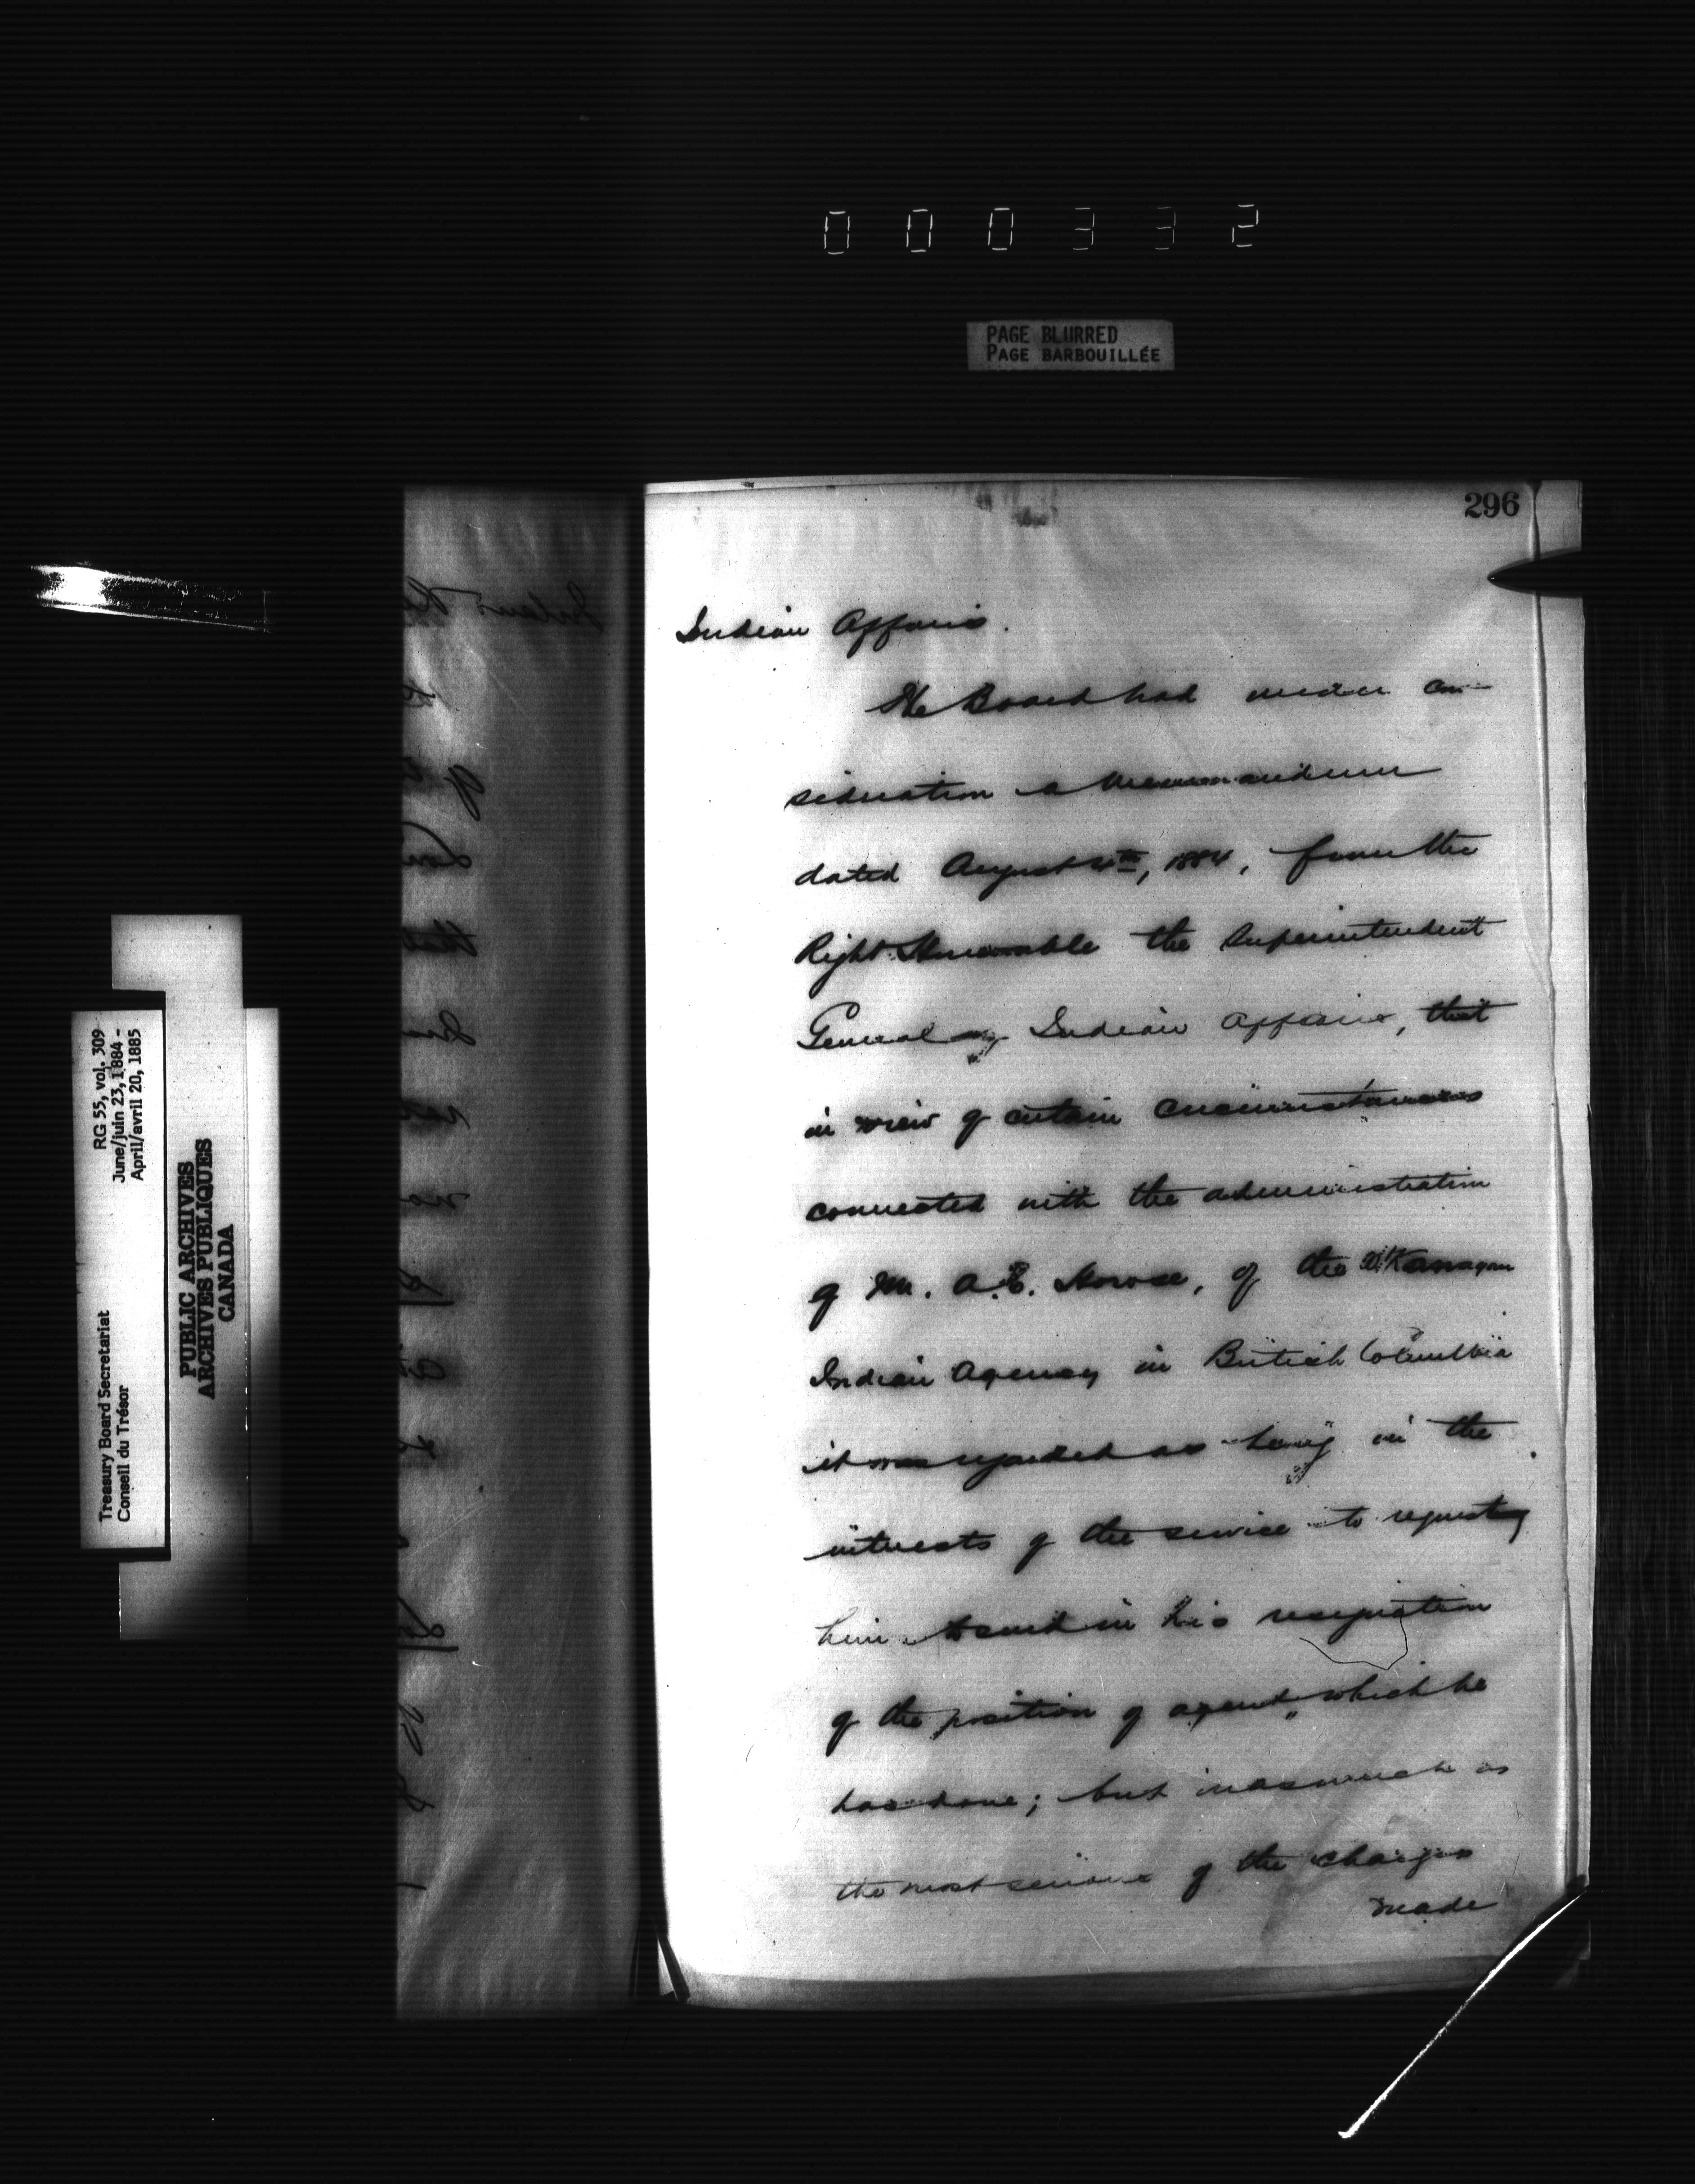 000332
PAGE BLURRED
PAGE BARBOUILLÉE
296
Indian Affairs.
The Board had under con-
sideration a Memorandum
dated August 4th, 1884, from the
Right Honorable the Superintendent
General of Indian Affairs, that
in view of certain circumstances
connected with the administration
of Mr. A.E. Howse, of the O'Kanagan
Indian Agency in British Columbia
it was regarded as being in the
interests of the service to request
him to send in his resignation
of the position of agent which he
has done; but inasmuch as
the most serious of the charges
made
RG 55, vol. 309
June/juin 23, 1884 -
April/avril 20, 1885
Treasury Board Secretariat
Conseil du Trésor
PUBLIC ARCHIVES
ARCHIVES PUBLIQUES
CANADA